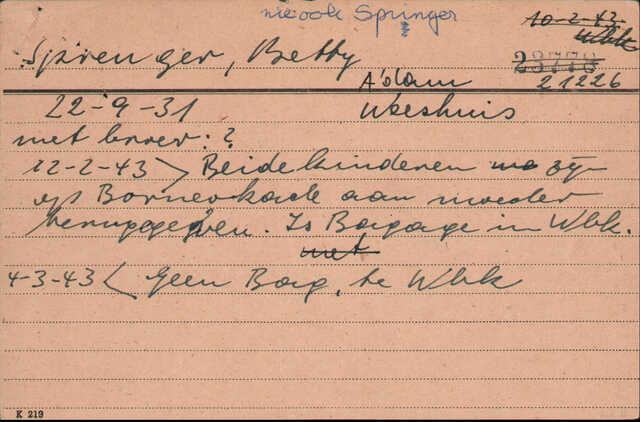 zie ook Springer
10-2-43
Wbk
Sprenger, Betty
23778
21226
A'dam
22-9-31
Weeshuis
met broer: ?
12-2-43 > Beide kinderen zijn
op Borneokade aan moeder
teruggegeven. Is Bagage in Wbk.
met
4-3-43 < Geen Bag. te Wbk
K 219